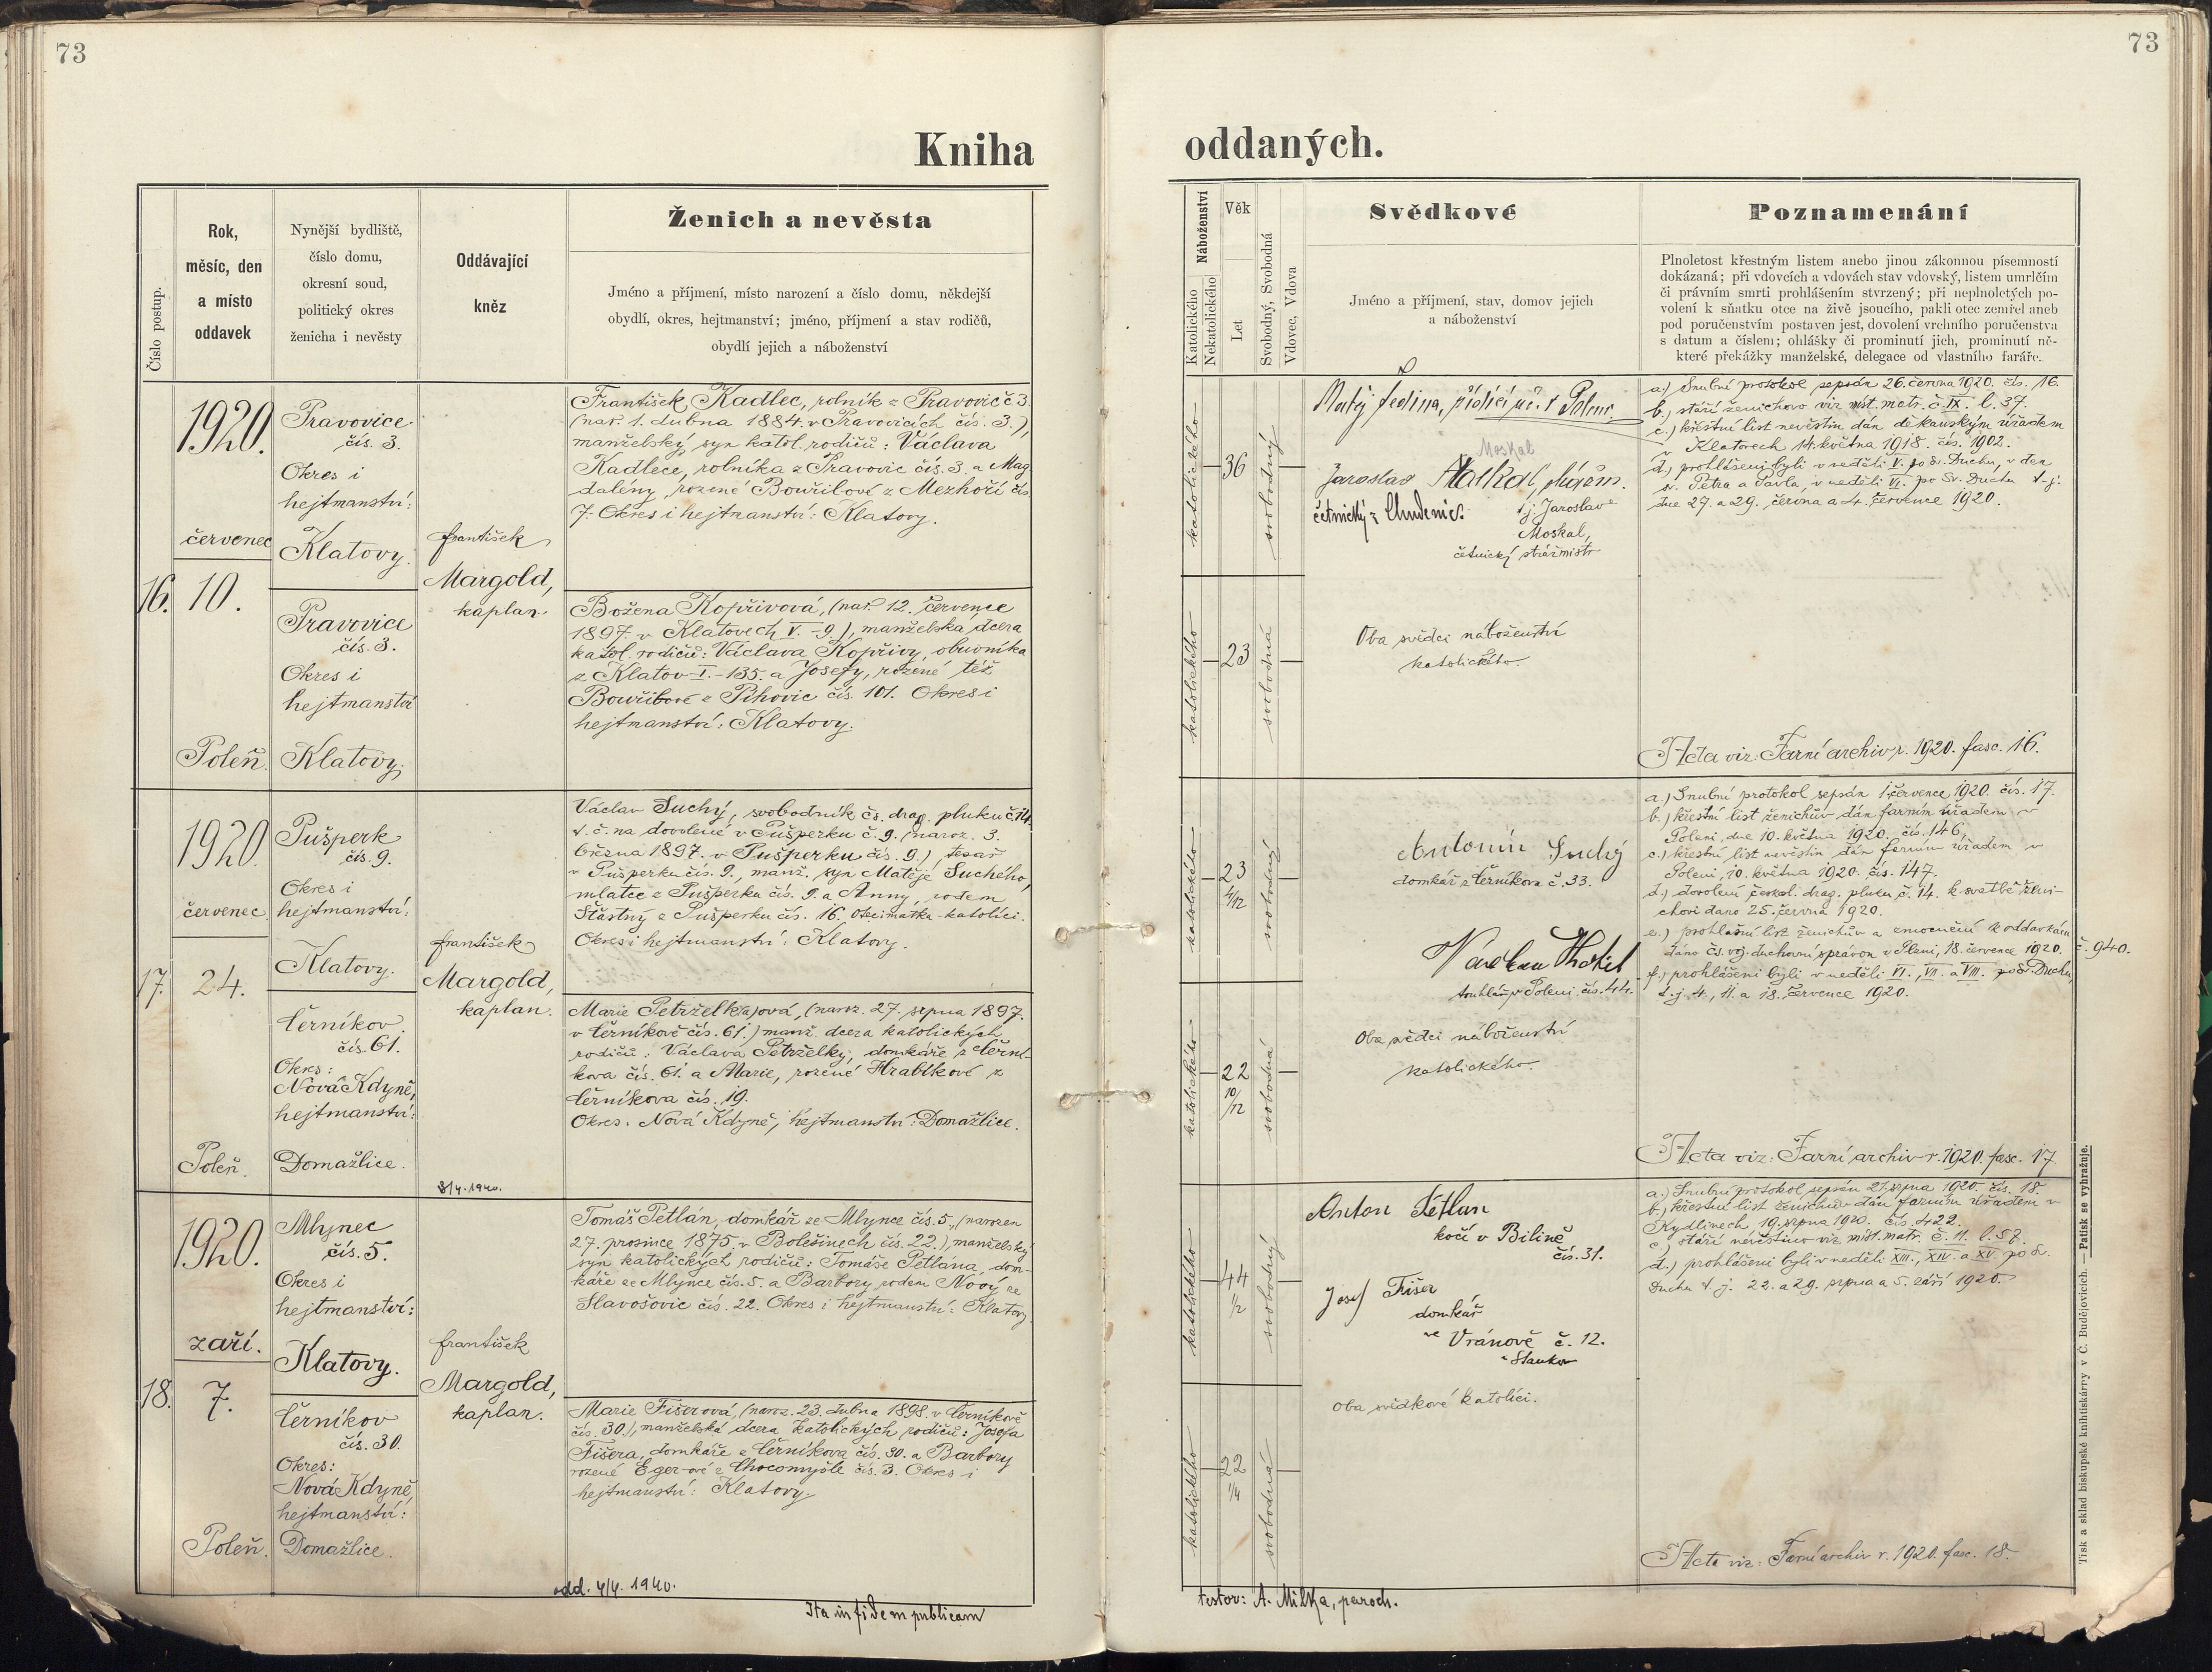 73
73
Kniha
oddaných.
Číslo postup.
Rok,
měsíc, den
a místo
oddavek
Nynější bydliště,
číslo domu,
okresní soud,
politický okres
ženicha i nevěsty
Oddávající
kněz
Ženich a nevěsta
Jméno a příjmení, místo narození a číslo domu, někdejší
obydlí, okres, hejtmanství; jméno, příjmení a stav rodičů,
obydlí jejich a náboženství
Náboženství
Katolického
Nekatolického
Věk
Let
Svobodný, Svobodná
Vdovec, Vdova
Svědkové
Jméno a příjmení, stav, domov jejich
a náboženství
Poznamenání
Plnoletost křestným listem anebo jinou zákonnou písemností
dokázaná; při vdovcích a vdovách stav vdovský, listem umrlčím
či právním smrti prohlášením stvrzený; při neplnoletých po-
volení k sňatku otce na živě jsoucího, pakli otec zemřel aneb
pod poručenstvím postaven jest, dovolení vrchního poručenstva
s datum a číslem; ohlášky či prominutí jich, prominutí ně-
které překážky manželské, delegace od vlastního faráře.
16.
1920.
červenec
10.
Poleň.
Pravovice
čís. 3.
Okres i
hejtmanství:
Klatovy.
Pravovice
čís. 3.
Okres i
hejtmanství
Klatovy.
František
Margold,
kaplan.
František Kadlec, rolník z Pravovic č. 3
(nar. 1. dubna 1884. v Pravovicích čís. 3.),
manželský syn katol. rodičů: Václava
Kadlece, rolníka z Pravovic čís. 3. a Mag
dalény, rozené Bouřilové z Mezhoří čís
7. Okres i hejtmanství: Klatovy.
Božena Kopřivová, (nar. 12. července
1897. v Klatovech V. - 9.), manželská dcera
katol. rodičů: Václava Kopřivy, obuvníka
z Klatov I. - 135. a Josefy, rozené též
Bouřilové z Pihovic čís. 101. Okres i
hejtmanství: Klatovy.
katolického
36
svobodný
katolického
23
svobodná
Matěj Jedlina, řídící uč. v Poleni.
Moskal
Jaroslav Moskal, strážm.
četnický z Chudenic.
t.j. Jaroslav
Moskal,
četnický strážmistr
Oba svědci náboženství
katolického.
a.) Snubní protokol sepsán 26. června 1920. čís. 16.
b.) stáří ženichovo viz míst. matr. č. IX. l. 37.
c.) křestní list nevěstin dán děkanským úřadem
v Klatovech 14. května 1918. čís. 1902.
d.) prohlášeni byli v neděli V. po sv. Duchu, v den
sv. Petra a Pavla, v neděli VI. po sv. Duchu t. j.
dne 27. a 29. června a 4. července 1920.
Acta viz: Farní archiv r. 1920. fasc. 16.
17.
1920.
červenec
24.
Poleň.
Pušperk
čís. 9.
Okres i
hejtmanství:
Klatovy.
Černíkov.
čís. 61.
Okres:
Nová Kdyně,
hejtmanství:
Domažlice.
František
Margold,
kaplan.
8/4. 1940.
Václav Suchý, svobodník čs. drag. pluku č. 14.
t. č. na dovolené v Pušperku č. 9. (naroz. 3.
března 1897. v Pušperku čís. 9.), tesař
v Pušperku čís. 9., manž. syn Matěje Suchého,
mlatce z Pušperku čís. 9. a Anny, rodem
Šťastný z Pušperku čís. 16. Otec i matka - katolíci.
Okres i hejtmanství: Klatovy.
Marie Petrželkajová, (naroz. 27. srpna 1897.
v Černíkově čís. 61.) manž. dcera katolických
rodičů: Václava Petrželky, domkáře z Černí-
kova čís. 61. a Marie, rozené Hrabíkové z
Černíkova čís. 19.
Okres: Nová Kdyně, hejtmanství: Domažlice.
katolického
23
4/12
svobodný
katolického
22
10/12
svobodná
Antonín Suchý
domkář z Černíkova č. 33.
truhlář v Poleni čís. 44.
Oba svědci náboženství
katolického.
a.) Snubní protokol sepsán 1. července 1920. čís. 17.
b.) křestní list ženichův dán farním úřadem v
Poleni, dne 10. května 1920. čís. 146,
c.) křestní list nevěstin dán farním úřadem v
Poleni, 10. května 1920. čís. 147.
d.) dovolení českosl. drag. pluku č. 14. k svatbě ženi-
chovi dáno 25. června 1920.
e.) prohlašní list ženichův a zmocnění k oddavkám
dáno čs. voj. duchovní správou v Plzni, 18. července 1920. č. 940.
f.) prohlášeni byli v neděli VI., VII. a VIII. po sv. Duchu,
t. j. 4., 11. a 18. července 1920.
Acta viz: Farní archiv r. 1920. fasc. 17.
18.
1920.
září.
7.
Poleň.
Mlynec
čís. 5.
Okres i
hejtmanství:
Klatovy.
Černíkov
čís. 30.
Okres:
Nová Kdyně,
hejtmanství:
Domažlice.
František
Margold,
kaplan.
Tomáš Petlán, domkář ze Mlynce čís. 5., (narozen
27. prosince 1875. v Bolešinech čís. 22.), manželský
syn katolických rodičů: Tomáše Petlána, dom-
káře ze Mlynce čís. 5. a Barbory, rodem Nový ze
Slavošovic čís. 22. Okres i hejtmanství: Klatovy
Marie Fišerová, (naroz. 23. dubna 1898. v Černíkově
čís. 30.), manželská dcera katolických rodičů: Josefa
Fišera, domkáře z Černíkova čís. 30. a Barbory
rozené Eger-ové z Chocomyšle čís. 3. Okres i
hejtmanství: Klatovy.
katolického
44
1/2
svobodný
katolického
22
1/4
svobodná
Anton Petlan
kočí v Bilině
čís. 31.
Josef Fišer
domkář
ve Vránově č. 12.
Oba svědkové katolíci.
a.) Snubní protokol sepsán 21. srpna 1920. čís. 18.
b.) křestní list ženichův dán farním úřadem v
Kydlinech 19. srpna 1920. čís. 422.
c.) stáří nevěstino viz míst. matr. č. 11. l. 57.
d.) prohlášeni byli v neděli XIII., XIV. a XV. po sv.
Duchu t. j. 22. a 29. srpna a 5. září 1920.
Acta viz: Farní archiv r. 1920. fasc. 18.
odd. 4/4. 1940.
Ita in fidem publicam
testor: A. Milka, paroch.
Tisk a sklad biskupské knihtiskárny v Č. Budějovicích. — Patisk se vyhražuje.